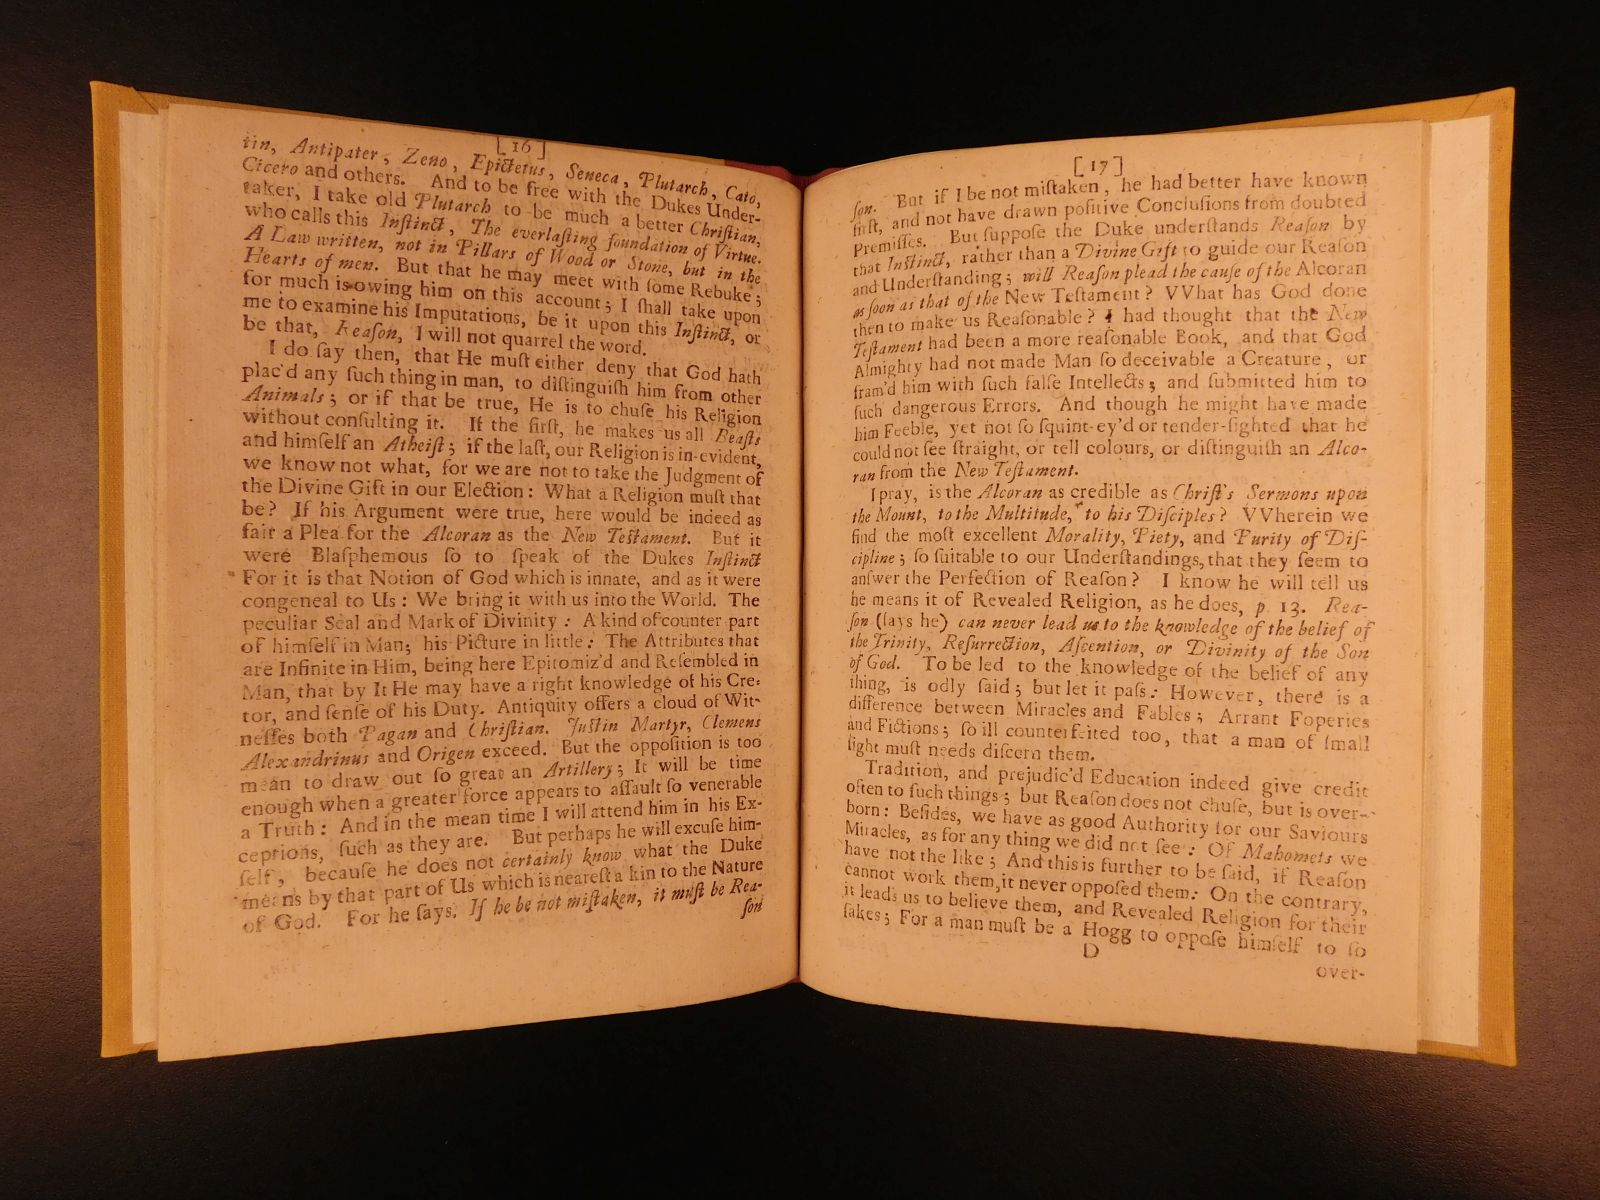 [16]
tin, Antipater, Zeno, Epictetus, Seneca, Plutarch, Cato,
Cicero and others. And to be free with the Dukes Under-
taker, I take old Plutarch to be much a better Chriſtian,
who calls this Inſtinct, The everlaſting foundation of Virtue.
A Law written, not in Pillars of Wood or Stone, but in the
Hearts of men. But that he may meet with ſome Rebuke;
for much is owing him on this account; I ſhall take upon
me to examine his Imputations, be it upon this Inſtinct, or
be that, Reaſon, I will not quarrel the word.
I do ſay then, that He muſt either deny that God hath
plac'd any ſuch thing in man, to diſtinguiſh him from other
Animals; or if that be true, He is to chuſe his Religion
without conſulting it. If the firſt, he makes us all Beaſts
and himſelf an Atheiſt; if the laſt, our Religion is in-evident,
we know not what, for we are not to take the Judgment of
the Divine Gift in our Election: What a Religion muſt that
be? If his Argument were true, here would be indeed as
fair a Plea for the Alcoran as the New Teſtament. But it
were Blaſphemous ſo to ſpeak of the Dukes Inſtinct
For it is that Notion of God which is innate, and as it were
congeneal to Us: We bring it with us into the World. The
peculiar Seal and Mark of Divinity: A kind of counter part
of himſelf in Man; his Picture in little: The Attributes that
are Infinite in Him, being here Epitomiz'd and Reſembled in
Man, that by It He may have a right knowledge of his Cre-
tor, and ſenſe of his Duty. Antiquity offers a cloud of Wit-
neſſes both Pagan and Chriſtian. Juſtin Martyr, Clemens
Alexandrinus and Origen exceed. But the oppoſition is too
mean to draw out ſo great an Artillery; It will be time
enough when a greater force appears to aſſault ſo venerable
a Truth: And in the mean time I will attend him in his Ex-
ceptions, ſuch as they are. But perhaps he will excuſe him-
ſelf, becauſe he does not certainly know what the Duke
means by that part of Us which is neareſt a kin to the Nature
of God. For he ſays. If he be not miſtaken, it muſt be Rea-
ſon
[17]
ſon. But if I be not miſtaken, he had better have known
firſt, and not have drawn poſitive Concluſions from doubted
Premiſſes. But ſuppoſe the Duke underſtands Reaſon by
that Inſtinct, rather than a Divine Gift to guide our Reaſon
and Underſtanding; will Reaſon plead the cauſe of the Alcoran
as ſoon as that of the New Teſtament? VVhat has God done
then to make us Reaſonable? I had thought that the New
Teſtament had been a more reaſonable Book, and that God
Almighty had not made Man ſo deceivable a Creature, or
fram'd him with ſuch falſe Intellects; and ſubmitted him to
ſuch dangerous Errors. And though he might have made
him Feeble, yet not ſo ſquint-ey'd or tender-ſighted that he
could not ſee ſtraight, or tell colours, or diſtinguiſh an Alco-
ran from the New Teſtament.
I pray, is the Alcoran as credible as Chriſt's Sermons upon
the Mount, to the Multitude, to his Diſciples? VVherein we
find the moſt excellent Morality, Piety, and Purity of Diſ-
cipline; ſo ſuitable to our Underſtandings, that they ſeem to
anſwer the Perfection of Reaſon? I know he will tell us
he means it of Revealed Religion, as he does, p. 13. Rea-
ſon (ſays he) can never lead us to the knowledge of the belief of
the Trinity, Reſurrection, Aſcention, or Divinity of the Son
of God. To be led to the knowledge of the belief of any
thing, is odly ſaid; but let it paſs: However, there is a
difference between Miracles and Fables; Arrant Foperies
and Fictions; ſo ill counterfeited too, that a man of ſmall
ſight muſt needs diſcern them.
Tradition, and prejudic'd Education indeed give credit
often to ſuch things; but Reaſon does not chuſe, but is over-
born: Beſides, we have as good Authority for our Saviours
Miracles, as for any thing we did not ſee: Of Mahomets we
have not the like; And this is further to be ſaid, if Reaſon
cannot work them, it never oppoſed them: On the contrary,
it leads us to believe them, and Revealed Religion for their
ſakes; For a man muſt be a Hogg to oppoſe himſelf to ſo
D
over-